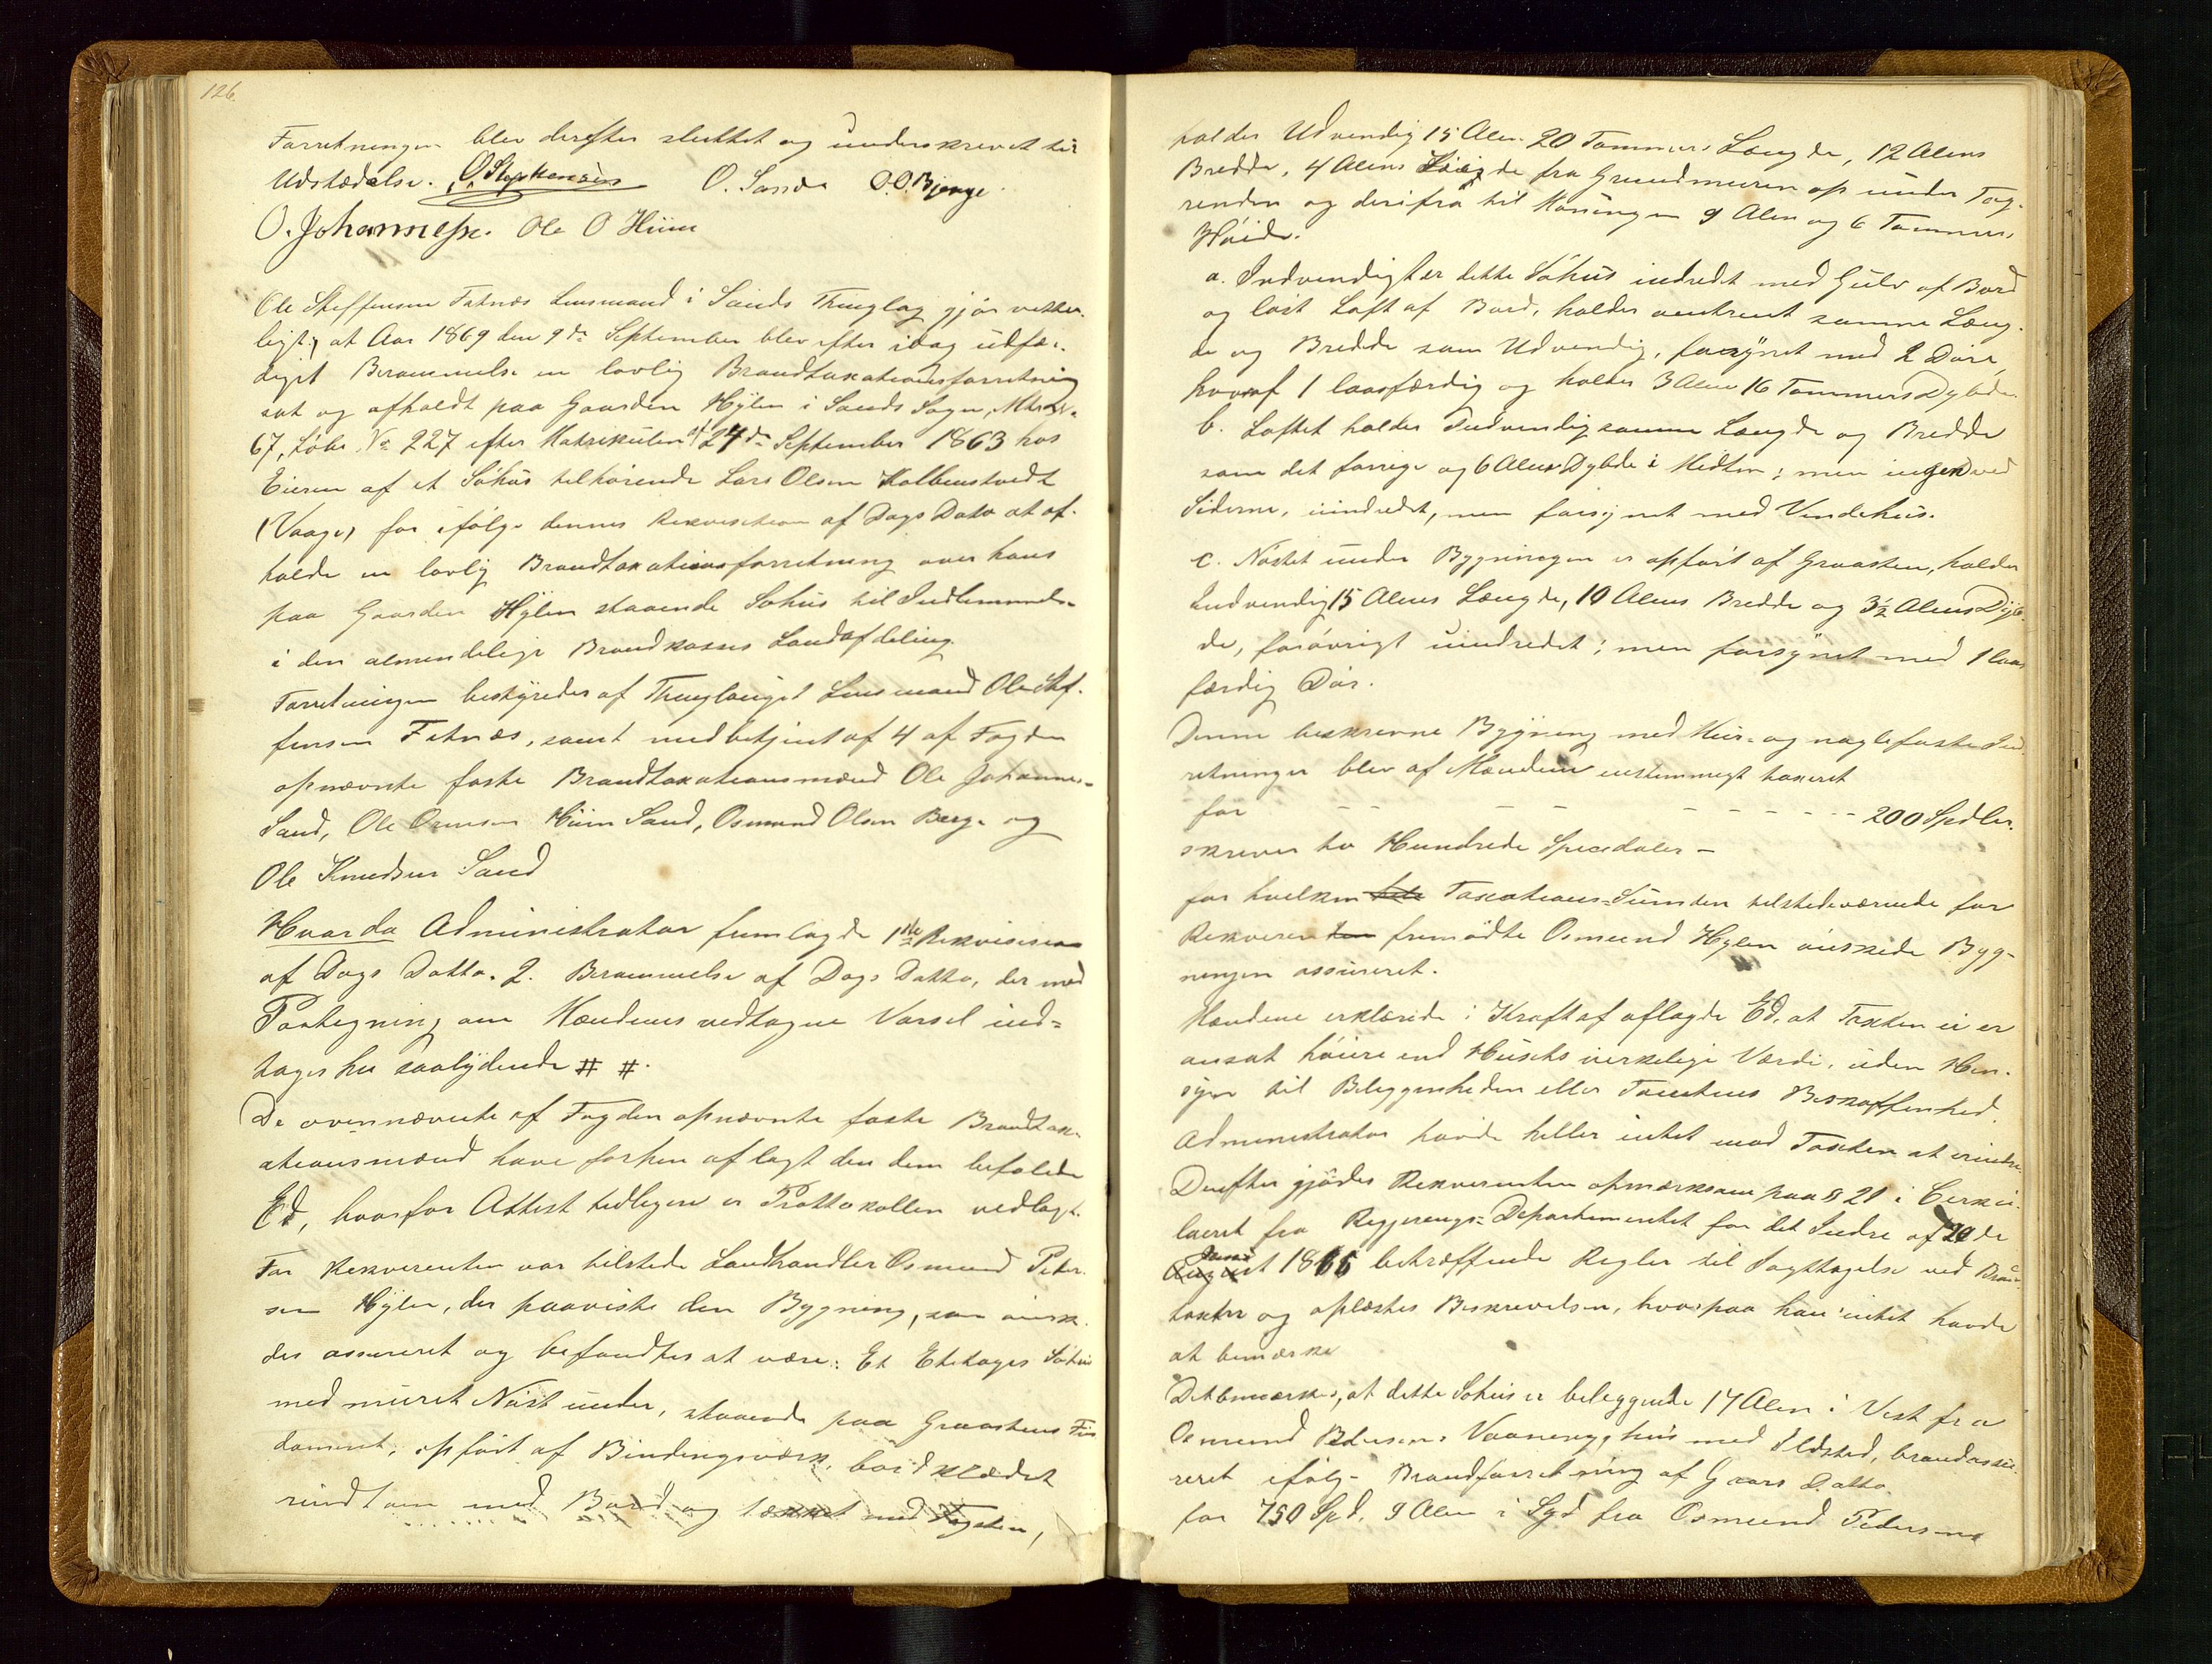 126.
Forretningen blev derefter sluttet og underskrevet til
Udstædelse. O. Stephensen O. Sande O.O. Bjerge.
O. Johannessen. Ole O Hiim
Ole Steffensen Fatnæs Lensmand i Sands Thinglag gjør vitter-
ligt, at Aar 1869 den 9de September blev efter idag udfær-
diget Berammelse en lovlig Brandtaxationsforretning
sat og afholdt paa Gaarden Hylen i Sands Sogn, Mtr Nr.
67, Løbe No 227 efter Matrikulen af 24de September 1863 hos
Eieren af et Søhus tilhørende Lars Olsen Kolbenstvedt
(Vaage) for ifølge dennes Rekvisition af Dags Dato at af-
holde en lovlig Brandtaxationsforretning over hans
paa Gaarden Hylen staaende Søhus til Indlemmelse
i den almindelige Brandkasses Landafdeling.
Forretningen bestyredes af Thinglauget Lensmand Ole Stef-
fensen Fatnæs, samt medbetjent af 4 af Fogden
opnævnte faste Brandtaxationsmænd Ole Johannes-
Sand, Ole Ormsen Hiim Sand, Osmund Olsen Berge og
Ole Knudsen Sand
Hvorda Administrator fremlagde 1ste Rekvisision
af Dags Datto. 2. Berammelse af Dags Datto, der med
Paategning om Mændenes vedtagne Varsel ind-
tages her saalydende # #.
De ovennævnte af Fogden opnævnte faste Brandtax-
ationsmænd have forhen aflagt den dem befalede
Ed, hvorfor Attest tidligere er Prottokollen vedlagt.
For Rekverenten var tilstede Landhandler Osmund Peder-
sen Hylen, der paaviste den Bygning, som ønsk-
des assureret og befandtes at være: Et Etetages Søhus
med muret Nøst under, staaende paa Graastens Fun
dament, opført af Bindingsværk, bordklædet
rundtom med Bord og tækket med Tagsten,
holder Udvendig 15 Alen 20 Tommers Længde, 12 Alens
Bredde, 4 Alens Høide fra Grundmuren op under Tag-
renden og derifra til Møningen 9 Alen og 6 Tommers
Høide.
a. Indvendigt er dette Søhus indredt med Gulv af Bord
og løst Loft af Bord, holder omtrent samme Læng-
de og Bredde som Udvendig, forsynet med 2 Døre,
hvoraf 1 laasfærdig og holder 3 Alen 16 Tommers Dybde
b. Loftet holder Indvendig samme Længde og Bredde
som det forrige og 6 Alens Dybde i Midten; men ingen ved
Siderne, uindredt, men forsynet med Vindehus.
c. Nøstet under Bygningen er opført af Graasten, holder
Indvendig 15 Alens Længde, 10 Alens Bredde og 3½ Alens Dyb-
de, forøvrigt uindredet; men forsynet med 1 laas
færdig Dør.
Denne beskrevne Bygning med Mur- og naglefaste Ind
retninger blev af Mændene enstemmigt taxeret
for - - - - - - - - - 200 Spdlr.
skriver to Hundrede Speciedaler -
for hvilken Taxations-Sum den tilstedeværende for
Rekverenten fremødte Osmund Hylen ønskede Byg-
ningen assureret.
Mændene erklærede i Kraft af aflagde Ed, at Taxten ei er
ansat høiere end Husets virkelige Værdi, uden Hen-
syn til Beliggenheden eller Tomtens Beskaffenhed.
Administrator havde heller intet mod Taxten at erindre.
Derefter gjødes Rekverenten opmærksom paa § 21 i Cirkü-
læret fra Regjerings-Departementet for det Indre af 20de
Juni 1866 betræffende Regler til Iagttagelse ved Brand
taxter og oplæstes Beskrivelsen, hvorpaa han intet havde
at bemærke
Det bemærkes, at dette Søhus er beliggende 17 Alen i Vest fra
Osmund Pedersens Vaaningshus med Ildsted, brandassu-
reret ifølge Brandforretning af Gaars Datto
for 750 Spd, 9 Alen i Syd fra Osmund Pedersens